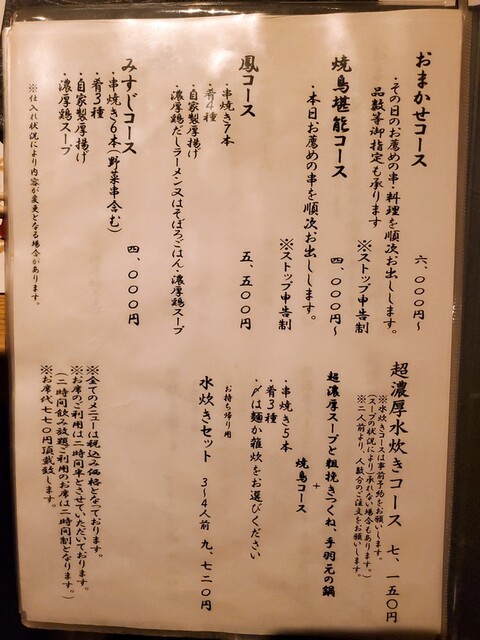 おまかせコース
・その日のお薦めの串・料理を順次お出しします。
品数等御指定も承ります
六、〇〇〇円〜
※ストップ申告制
焼鳥堪能コース
・本日お薦めの串を順次お出しします。
四、〇〇〇円〜
※ストップ申告制
鳳コース
・串焼き7本
・肴4種
・自家製厚揚げ
・濃厚鶏だしラーメン又はそぼろごはん・濃厚鶏スープ
五、五〇〇円
みすじコース
・串焼き6本(野菜串含む)
・肴3種
・自家製厚揚げ
・濃厚鶏スープ
四、〇〇〇円
※仕入れ状況により内容が変更となる場合があります。
超濃厚水炊きコース 七、一五〇円
※水炊きコースは事前予約をお願いします。
(スープの状況により承れない場合もあります。)
※二人前より、人数分のご注文をお願いします。
超濃厚スープと粗挽きつくね、手羽元の鍋
+
焼鳥コース
・串焼き5本
・肴3種
・〆は麺か雑炊をお選びください
お持ち帰り用
水炊きセット 3〜4人前 九、七二〇円
※全てのメニューは税込み価格となっております。
※お席のご利用は二時間半とさせていただいております。
(二時間飲み放題ご利用のお席は二時間制となります。)
※お席代七七〇円頂戴致します。